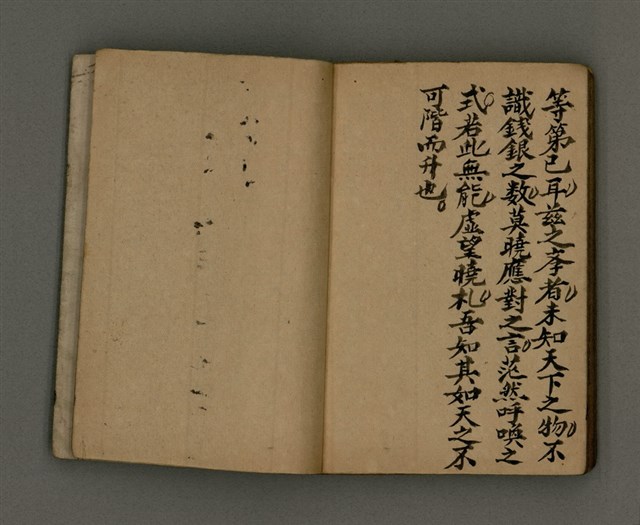 等第已耳茲之孝者未知天下之物不
識錢銀之数莫曉應對之言茫然呼喚之
式若此無能虛望曉札吾知其如天之不
可階而升也。